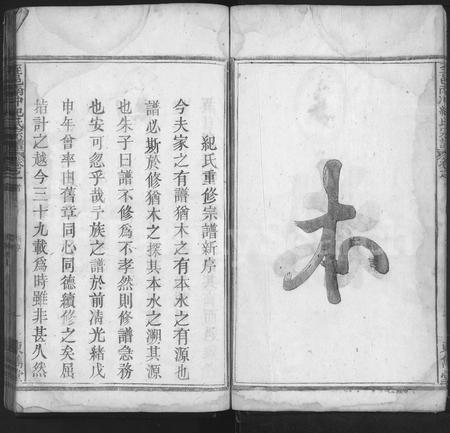 本
紀氏重修宗譜新序
今夫家之有譜猶木之有本水之有源也
譜必斯於修猶木之探其本水之溯其源
也朱子曰譜不修為不孝然則修譜急務
也安可忽乎哉予族之譜於前清光緒戊
申年曾率由舊章同心同德續修之矣屈
指計之越今三十九載為時雖非甚久然